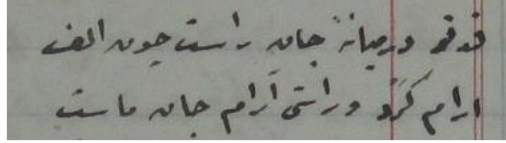 قدقد درمیانهٔ جان راست چون الف
ارام کرد و راستی آرام جان ماست